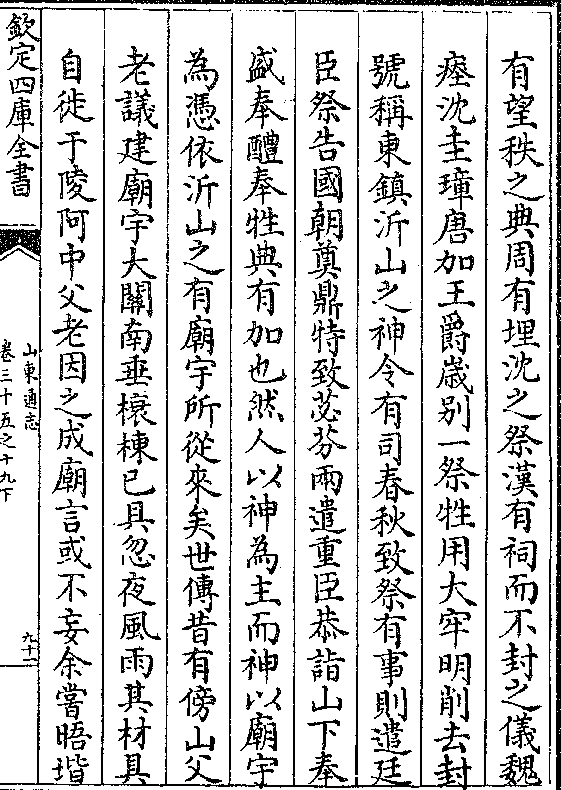 有望秩之典周有埋沈之祭漢有祠而不封之儀魏
瘞沈圭璋唐加王爵歳别一祭牲用大牢明削去封
號稱東鎮沂山之神令有司春秋致祭有事則遣廷
臣祭告國朝奠鼎特致苾芬兩遣重臣恭詣山下奉
盛奉醴奉牲典有加也然人以神為主而神以廟宇
為憑依沂山之有廟宇所從來矣世傳昔有傍山父
老議建廟宇大關南垂榱棟已具忽夜風雨其材具
自徙于陵阿中父老因之成廟言或不妄余嘗晤堦
欽定四庫全書
山東通志
卷三十五之十九下
九十二